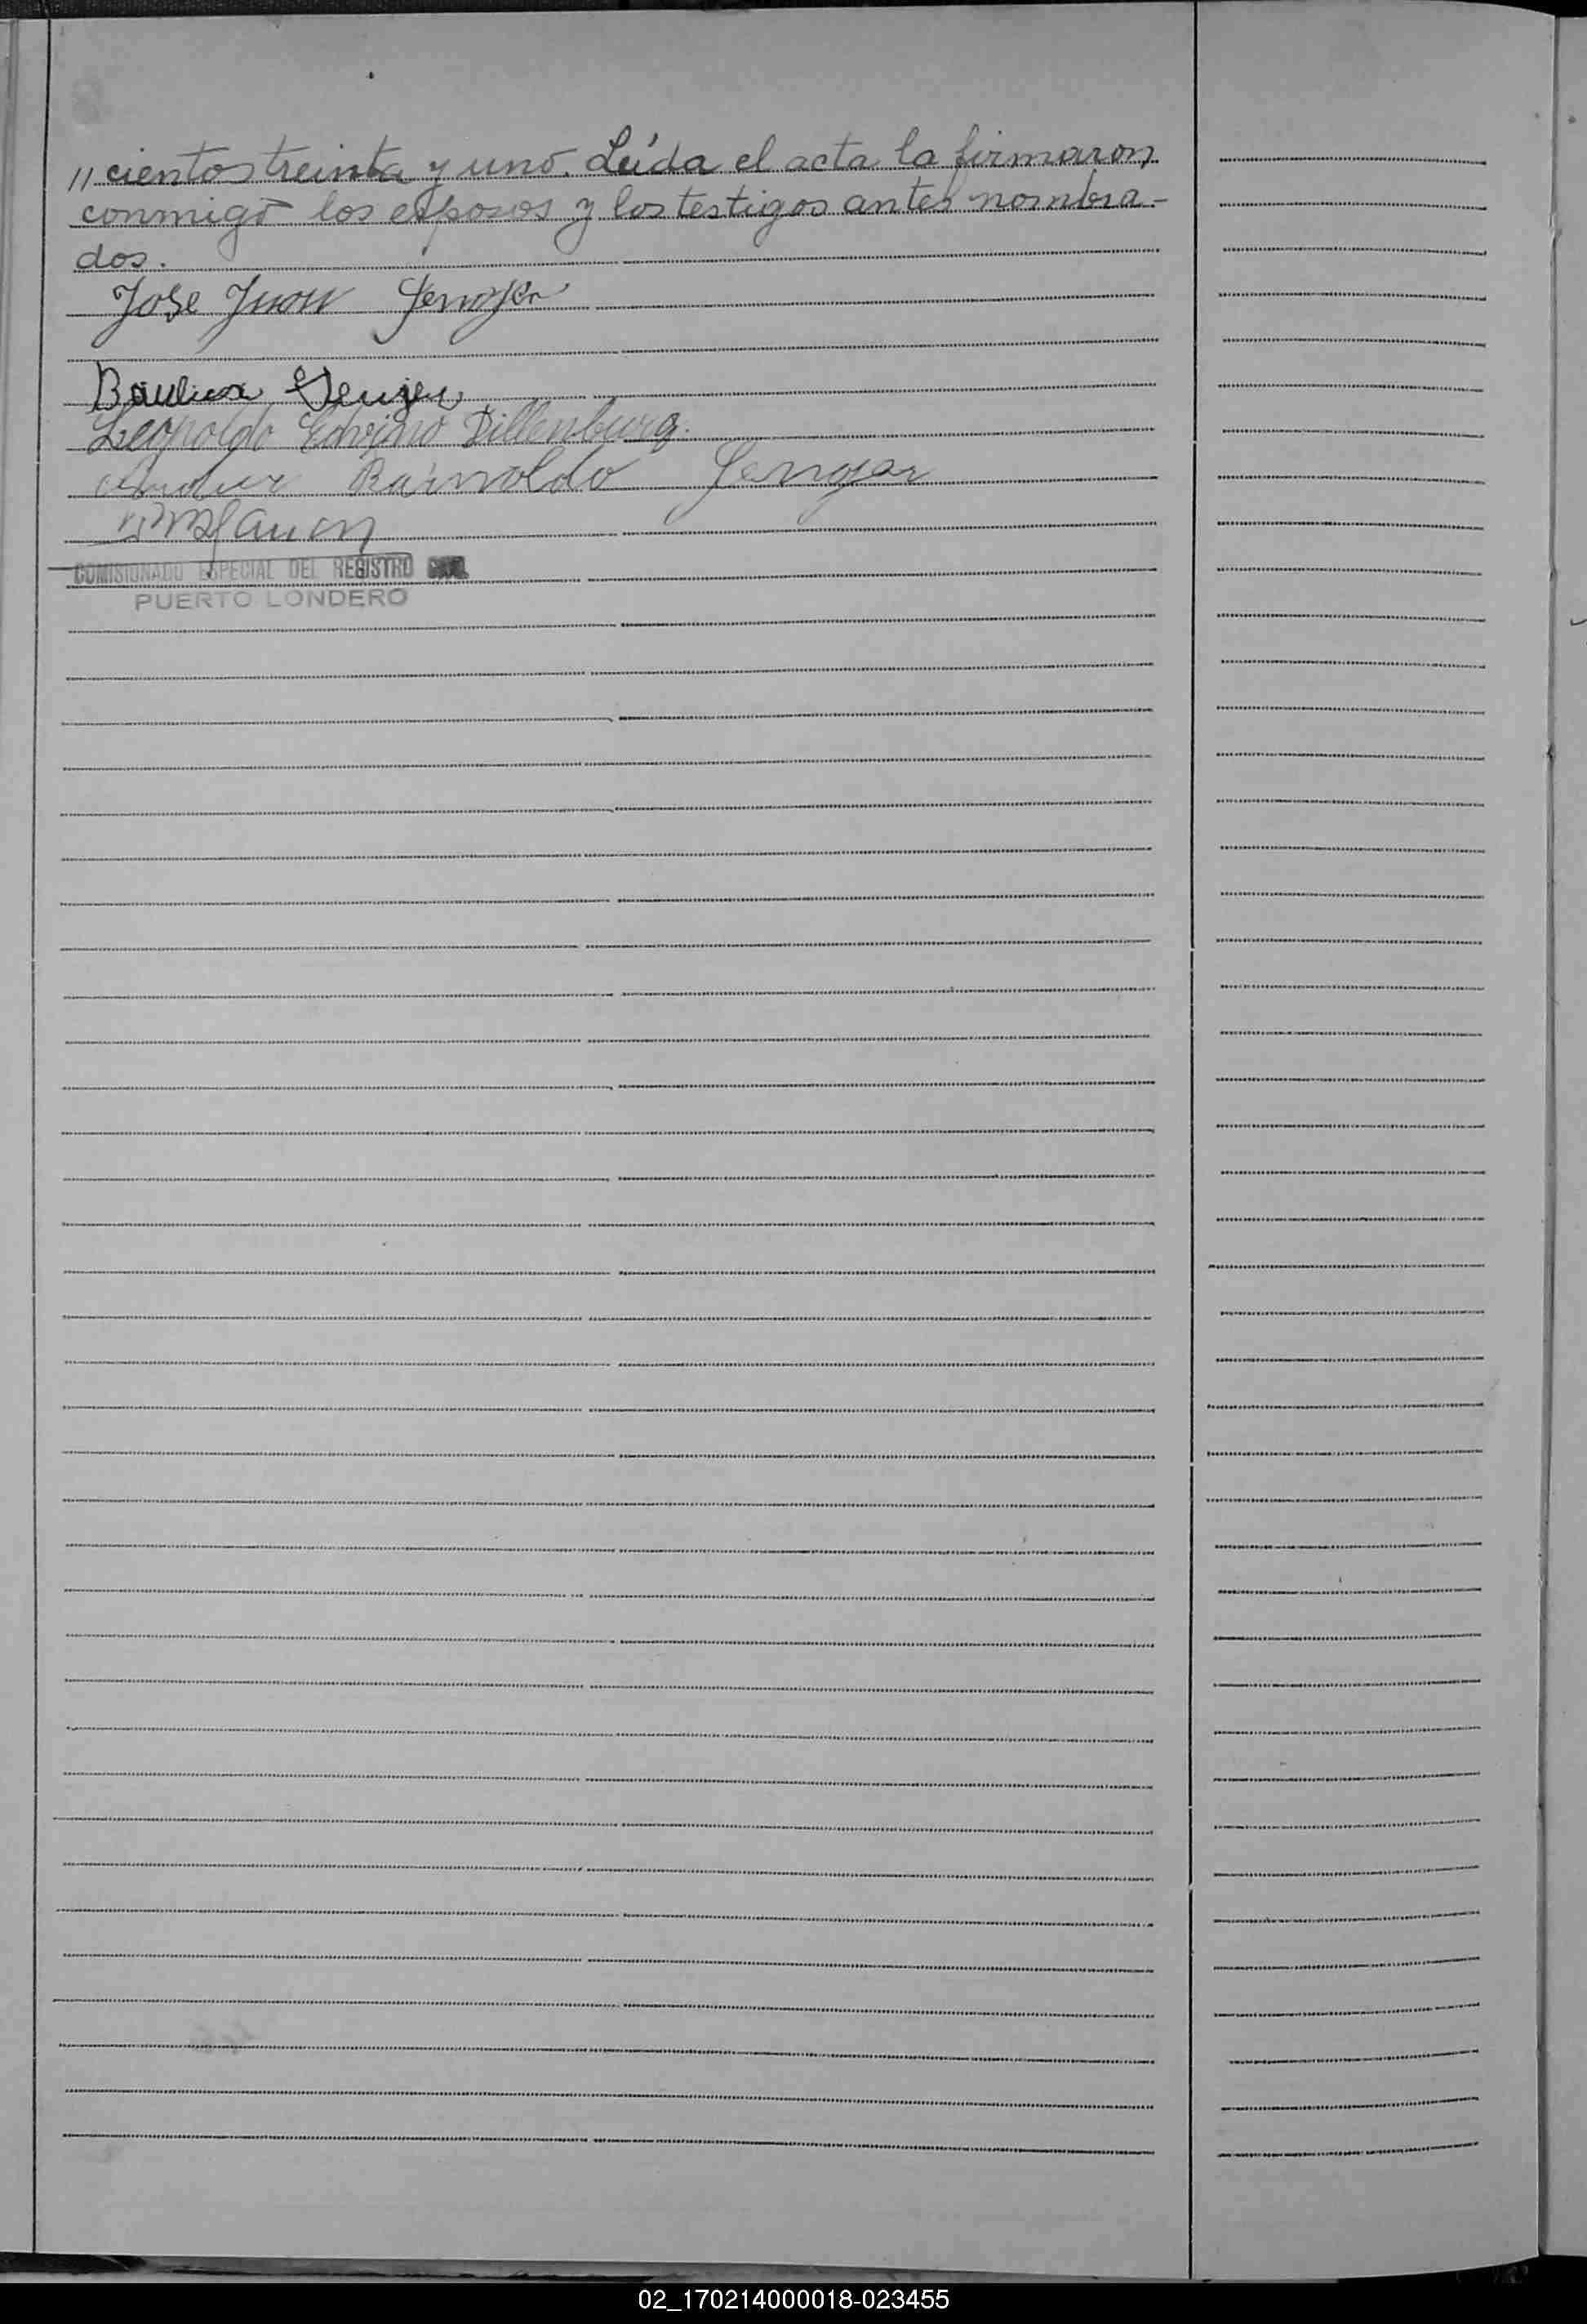 " cientos treinta y uno. Leída el acta la firmaron
conmigo los esposos y los testigos antes nombra-
dos.
Jose Juan
Leopoldo Edvino Dillenburg.
Rainoldo
COMISIONADO ESPECIAL DEL REGISTRO CIVIL
PUERTO LONDERO
02_170214000018-023455